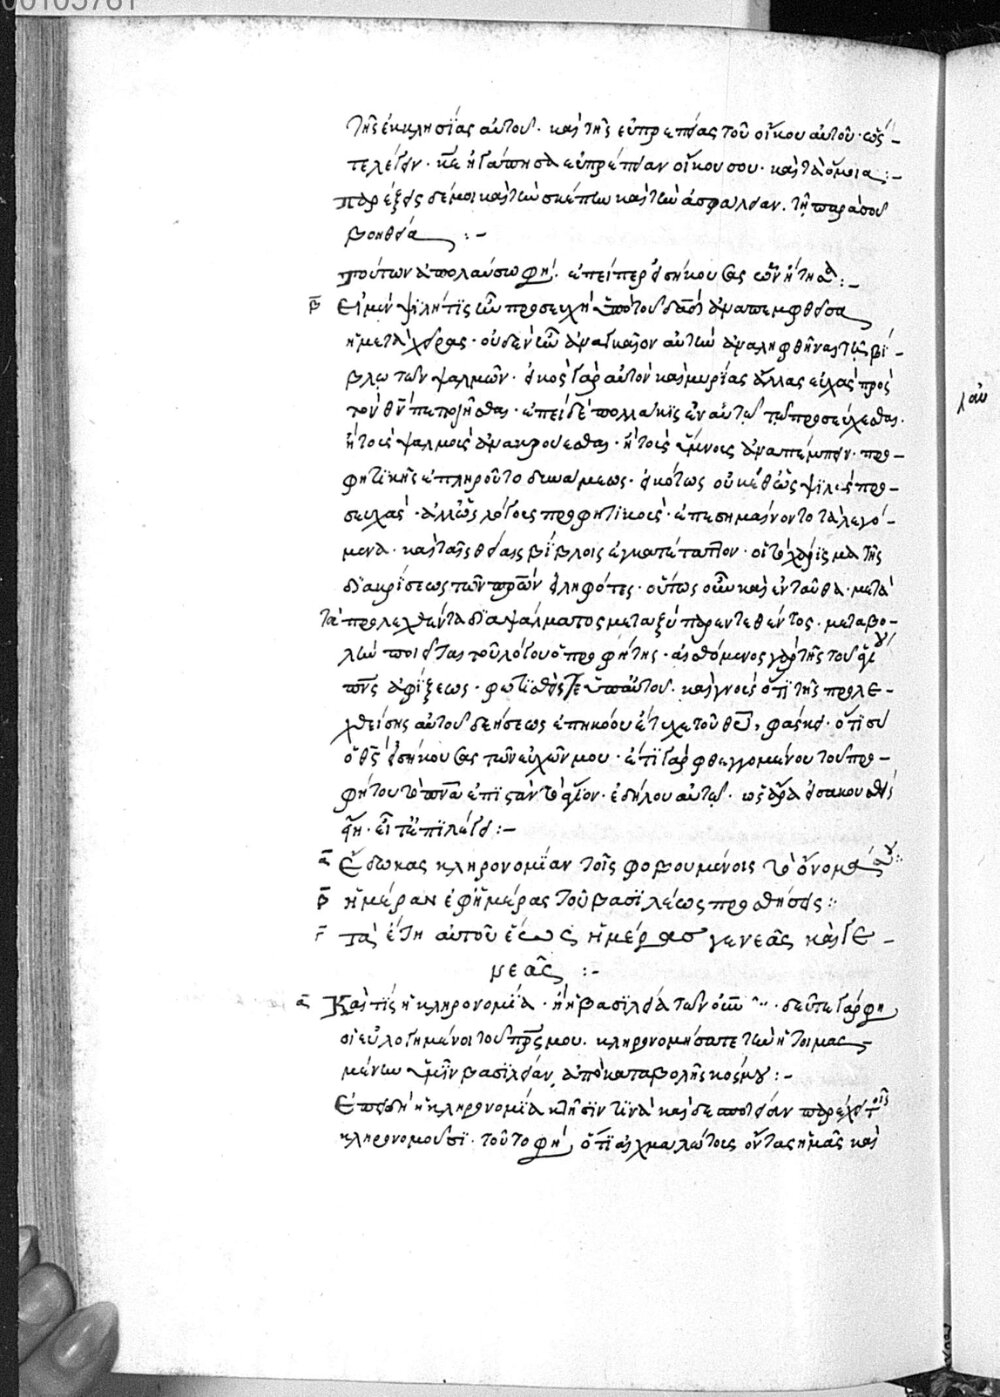 00105781
τῆς ἐκκλησίας αὐτοῦ. καὶ τῆς εὐπρεπείας τοῦ οἴκου αὐτοῦ. ὡς
τελεῖσθαι. κε ἠγάπησα εὐπρέπειαν οἴκου σου. καὶ τὰ ὅμοια :-
παρέξεις δέ μοι καὶ τὴν σκέπην καὶ τὴν ἀσφάλειαν. τῇ παρὰ σοῦ
βοηθείᾳ :-
τούτων ἀπολαύσω φησί. ἐπείπερ εἰσήκουσας
β Εἰ μὲν ψιλή τις ἦν προσευχὴ ὑπὸ τοῦ δαδ ἀναπεμφθεῖσα
ἢ μετὰ χεῖρας. οὐδὲν ἦν ἀναγκαῖον αὐτὴν ἀναληφθῆναι τῇ βί-
βλω τῶν ψαλμῶν. εἰκὸς γὰρ αὐτὸν καὶ μυρίας ἄλλας εὐχὰς πρὸς
τὸν θν πεποιῆσθαι. ἐπεὶ δὲ πολλάκις ἐν αὐτῷ τῷ προσεύχεσθαι.
ἢ τοῖς ψαλμοῖς ἀνακρούεσθαι. ἢ τοῖς ὕμνοις ἀναπέμπειν. προ-
φητικῆς ἐπληροῦτο δυνάμεως. εἰκότως οὐκέθ' ὡς ψιλὰς προ-
σευχὰς. ἀλλ' ὡς λόγοις προφητικοῖς. ἐπεσημαίνοντο τὰ λεγό-
μενα. καὶ ταῖς θείαις βίβλοις ἐγκατέταττον. οἱ τὸ χάρισμα τῆς
διακρίσεως τῶν πρων εἰληφότες. οὕτως οὖν καὶ ἐνταῦθα. μετὰ
τὰ προλεχθέντα διαψάλματος μεταξὺ παρεντεθέντος. μεταβο-
λὴν ποιεῖται τοῦ λόγου ὁ προφήτης. αἰσθόμενος γὰρ τῆς τοῦ ἁγίου
πνς ἀφίξεως. φωτισθείς τε ὑπ' αὐτοῦ. καὶ γνοὺς ὅτι τῆς προλε-
χθείσης αὐτοῦ δεήσεως ἐπηκόου ἔτυχε τοῦ θεοῦ, φάσκει. ὅτι σὺ
ὁ θς εἰσήκουσας τῶν εὐχῶν μου. ἔτι γὰρ φθεγγομένου τοῦ προ-
φήτου τὸ πνα ἐπιστὰν τὸ ἅγιον. ἐδήλου αὐτῷ. ὡς ἄρα εἰσακουσθείς
εἴη. ἐφ' :-
α Ἔδωκας κληρονομίαν τοῖς φοβουμένοις τὸ ὄνομά σου :
β Ἡμέραν ἐφ' ἡμέρας τοῦ βασιλέως προσθήσεις :
γ Τὰ ἔτη αὐτοῦ ἕως ἡμέρας γενεᾶς καὶ γε-
νεᾶς :-
α Καὶ τίς ἡ κληρονομία. ἢ ἡ βασιλεία τῶν οὐνων. δεῦτε γάρ φη
οἱ εὐλογημένοι τοῦ πρς μου. κληρονομήσατε τὴν ἡτοιμασ-
μένην ὑμῖν βασιλείαν, ἀπὸ καταβολῆς κόσμου :-
Ἐπειδὴ ἡ κληρονομία κλῆσίν τινα καὶ δεσποτείαν παρέχει τοῖς
κληρονομοῦσι. τοῦτο φησί, ὅτι αἰχμαλώτους ὄντας ἡμᾶς καὶ